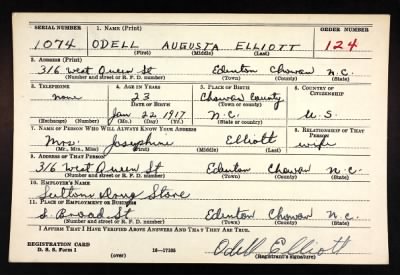 SERIAL NUMBER 1. NAME (Print) ORDER NUMBER
1074 ODELL AUGUSTA ELLIOTT 124
(First) (Middle) (Last)
2. ADDRESS (Print)
316 West Queen St Edenton Chowan N.C.
(Number and street or R. F. D. number) (Town) (County) (State)
3. TELEPHONE 4. AGE IN YEARS 5. PLACE OF BIRTH 6. COUNTRY OF CITIZENSHIP
none 23 Chowan County
DATE OF BIRTH (Town or county)
Jan 22 1917 N.C. U.S.
(Exchange) (Number) (Mo.) (Day) (Yr.) (State or country)
7. NAME OF PERSON WHO WILL ALWAYS KNOW YOUR ADDRESS 8. RELATIONSHIP OF THAT PERSON
Mrs. Josephine Elliott wife
(Mr., Mrs., Miss) (First) (Middle) (Last)
9. ADDRESS OF THAT PERSON
316 West Queen St Edenton Chowan N.C.
(Number and street or R. F. D. number) (Town) (County) (State)
10. EMPLOYER'S NAME
Drug Store
11. PLACE OF EMPLOYMENT OR BUSINESS
S. Broad St. Edenton Chowan N.C.
(Number and street or R. F. D. number) (Town) (County) (State)
I AFFIRM THAT I HAVE VERIFIED ABOVE ANSWERS AND THAT THEY ARE TRUE.
REGISTRATION CARD
D. S. S. Form 1 16-17105 Odell Elliott
(over) (Registrant's signature)